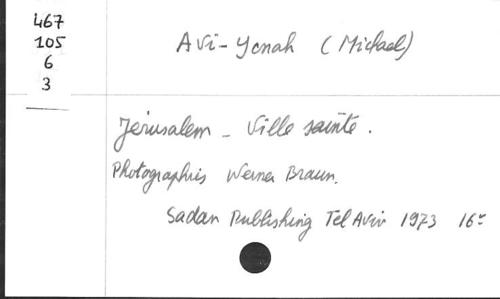 467
105
6
3
Avi-Yonah (Michael)
Jérusalem - Ville sainte.
Photographies Werner Braun.
Sadan Publishing Tel Aviv 1973 16°